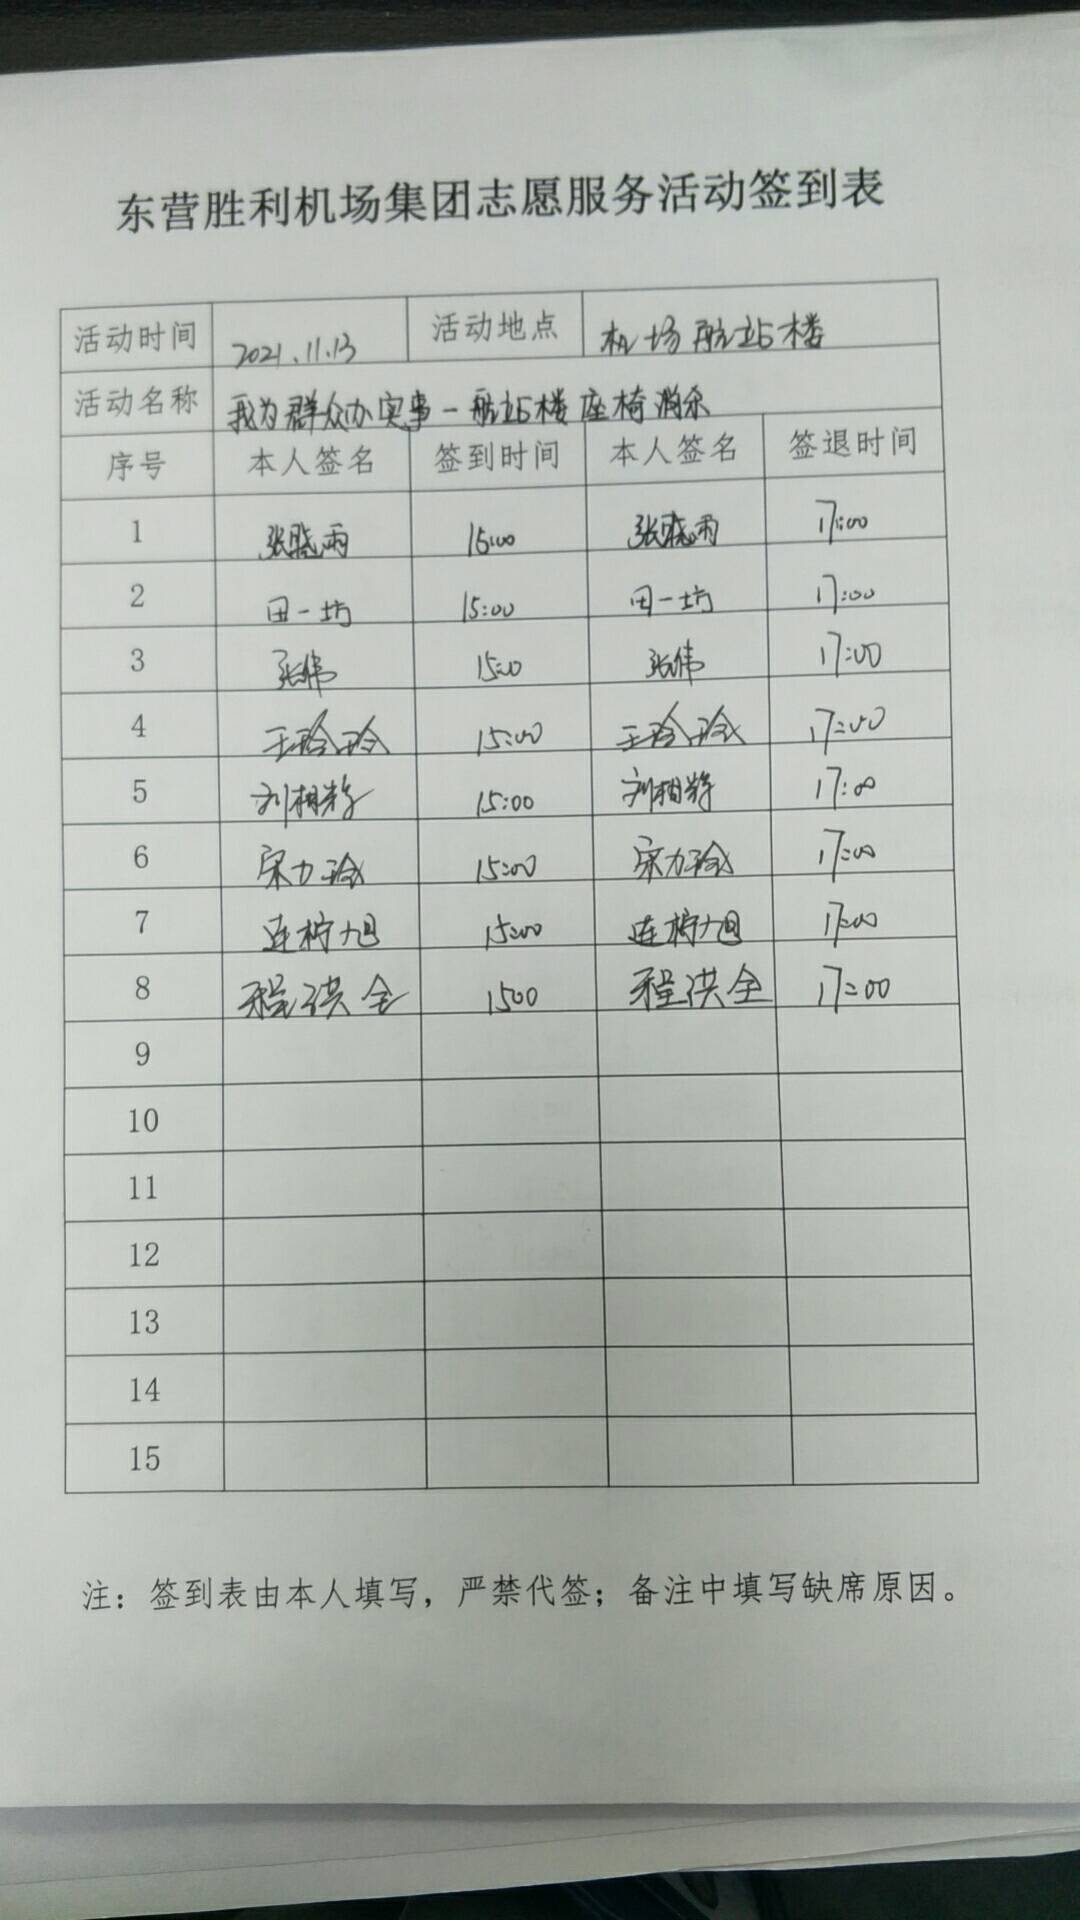 东营胜利机场集团志愿服务活动签到表
活动时间 2021.11.13 活动地点 机场航站楼
活动名称 我为群众办实事-航站楼座椅消杀
序号 本人签名 签到时间 本人签名 签退时间
1 张晓雨 15:00 张晓雨 17:00
2 田一坊 15:00 田一坊 17:00
3 张伟 15:00 张伟 17:00
4 王玲玲 15:00 王玲玲 17:00
5 刘相 15:00 刘相 17:00
6 宋力玲 15:00 宋力玲 17:00
7 连柠旭 15:00 连柠旭 17:00
8 程洪全 1500 程洪全 17:00
9
10
11
12
13
14
15
注：签到表由本人填写，严禁代签；备注中填写缺席原因。